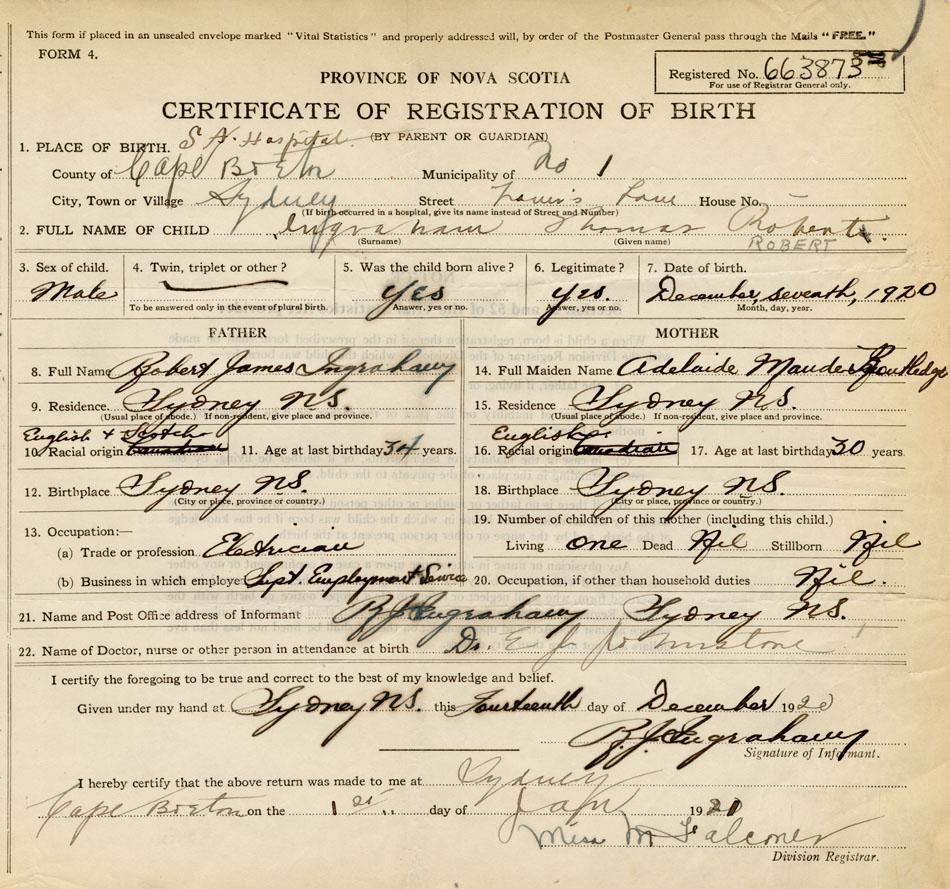 This form if placed in an unsealed envelope marked "Vital Statistics" and properly addressed will, by order of the Postmaster General pass through the Mails "FREE."
FORM 4.
PROVINCE OF NOVA SCOTIA
Registered No. 663873
For use of Registrar General only.
CERTIFICATE OF REGISTRATION OF BIRTH
(BY PARENT OR GUARDIAN)
1. PLACE OF BIRTH. S A. Hospital
County of Cape Breton Municipality of No 1
City, Town or Village Sydney Street Lane House No. –
(If birth occurred in a hospital, give its name instead of Street and Number)
2. FULL NAME OF CHILD Ingraham Thomas Robert
(Surname) (Given name) ROBERT
3. Sex of child. 4. Twin, triplet or other? 5. Was the child born alive? 6. Legitimate? 7. Date of birth.
Male Yes Yes. December, seventh, 1920
To be answered only in the event of plural birth. Answer, yes or no. Answer, yes or no. Month, day, year.
FATHER
8. Full Name Robert James Ingraham
9. Residence. Sydney N.S.
(Usual place of abode.) If non-resident, give place and province.
English + Scotch
10. Racial origin Canadian 11. Age at last birthday 34 years.
12. Birthplace Sydney N.S.
(City or place, province or country.)
13. Occupation:—
(a) Trade or profession Electrician
(b) Business in which employed Supt. Employment Service
MOTHER
14. Full Maiden Name Adelaide Maude Routledge
15. Residence Sydney N.S.
(Usual place of abode.) If non-resident, give place and province.
English
16. Racial origin Canadian 17. Age at last birthday 30 years.
18. Birthplace Sydney N.S.
(City or place, province or country.)
19. Number of children of this mother (including this child.)
Living one Dead Nil Stillborn Nil
20. Occupation, if other than household duties Nil.
21. Name and Post Office address of Informant R J Ingraham Sydney N.S.
22. Name of Doctor, nurse or other person in attendance at birth Dr. E J Johnstone
I certify the foregoing to be true and correct to the best of my knowledge and belief.
Given under my hand at Sydney N.S. this fourteenth day of December 1920
R. J. Ingraham
Signature of Informant.
I hereby certify that the above return was made to me at Sydney
Cape Breton on the 1 st day of Jan 1921
Miss M Falconer
Division Registrar.